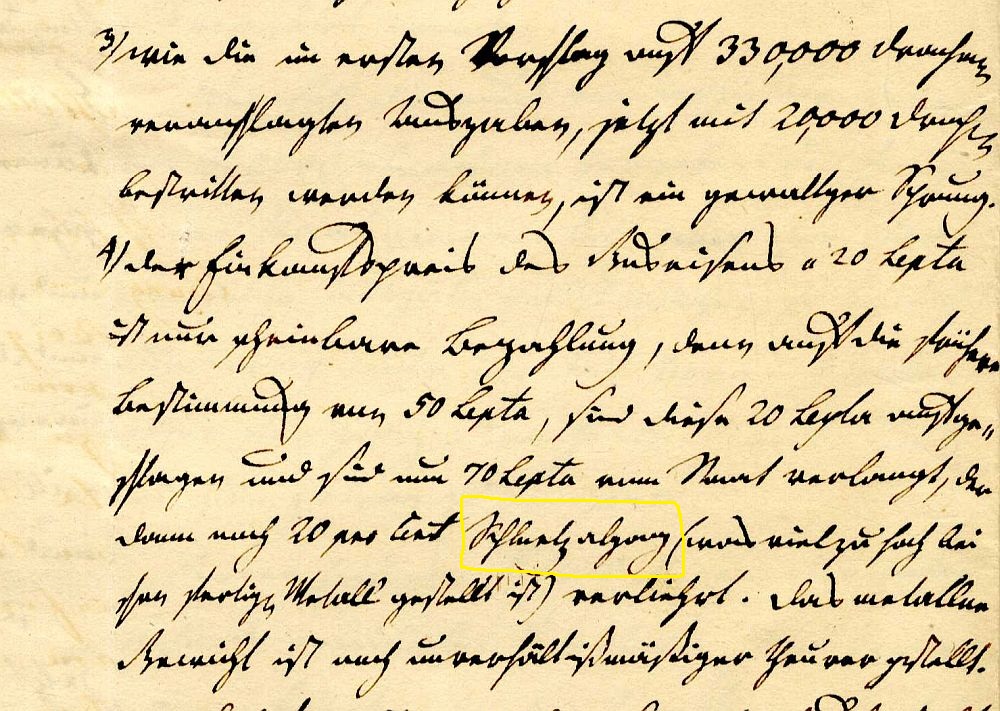 3) wie die im ersten Vorschlag auf 330,000 Drachmen
veranschlagten Ausgaben, jetzt mit 20,000 Drachm
bestritten werden können, ist ein gewaltger Sprung.
4) der Einkaufspreis des Gußeisens a 20 Lepta
ist nur scheinbare Bezahlung, denn auf die frühere
Bestimmung von 50 Lepta, sind diese 20 Lepta aufge„
schlagen und sind nun 70 Lepta vom Staat verlangt, der
dann noch 20 pro Cent Schmelzabgang (was viel zu hoch bei
schon fertign Metall gestellt ist) verliehrt. Das metallne
Gewicht ist auch unverhältnißmäßiger theurer gestellt.